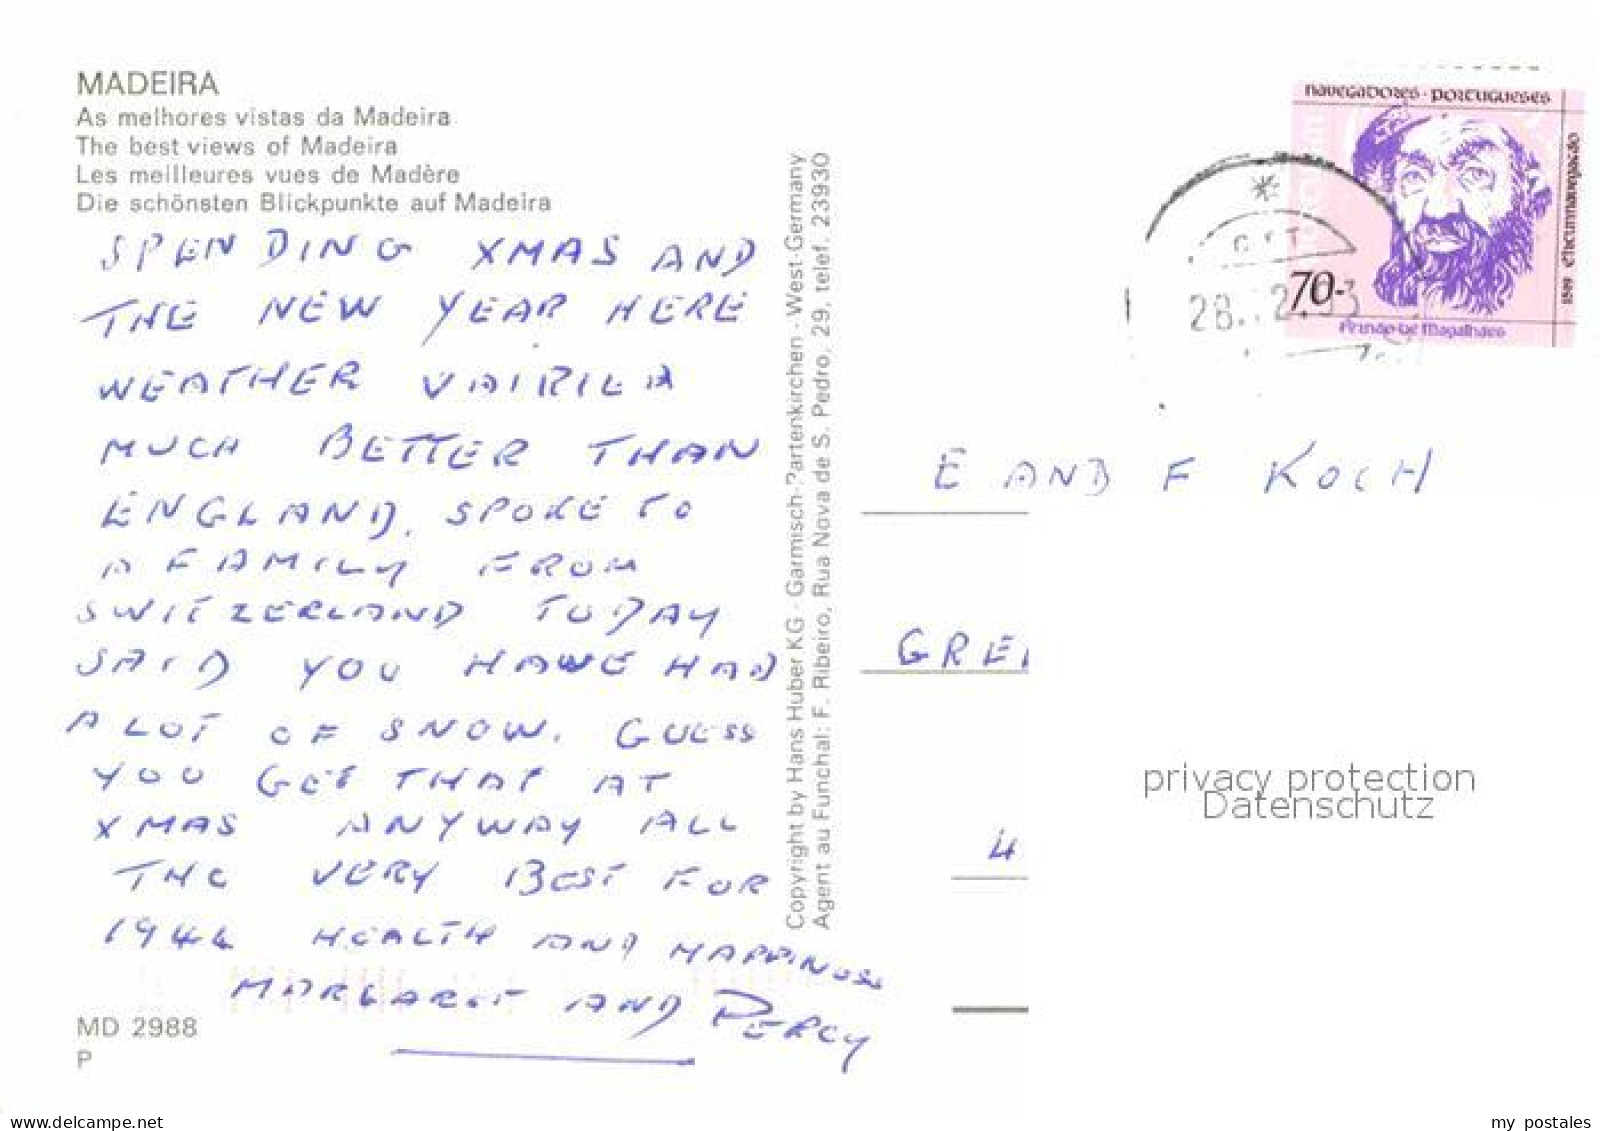 MADEIRA
As melhores vistas da Madeira
The best views of Madeira
Les meilleures vues de Madère
Die schönsten Blickpunkte auf Madeira
SPENDING XMAS AND
THE NEW YEAR HERE
WEATHER
MUCH BETTER THAN
ENGLAND, SPOKE TO
A FAMILY FROM
SWITZERLAND TODAY
SAID YOU HAWE HAD
A LOT OF SNOW. GUESS
YOU GET THAT AT
XMAS ANYWAY ALL
THE VERY BEST FOR
1944 HEALTH AND HAPPINESS
MARGARET AND PERCY
MD 2988
P
Copyright by Hans Huber KG - Garmisch-Partenkirchen - West-Germany
Agent au Funchal: F. Ribeiro, Rua Nova de S. Pedro, 29, telef. 23930
navegadores · portugueses
1519 Circumnavegação
70.-
Fernão de Magalhães
28. 2.93
E AND F KOCH
GREI
4
privacy protection
Datenschutz
www.delcampe.net
my_postales